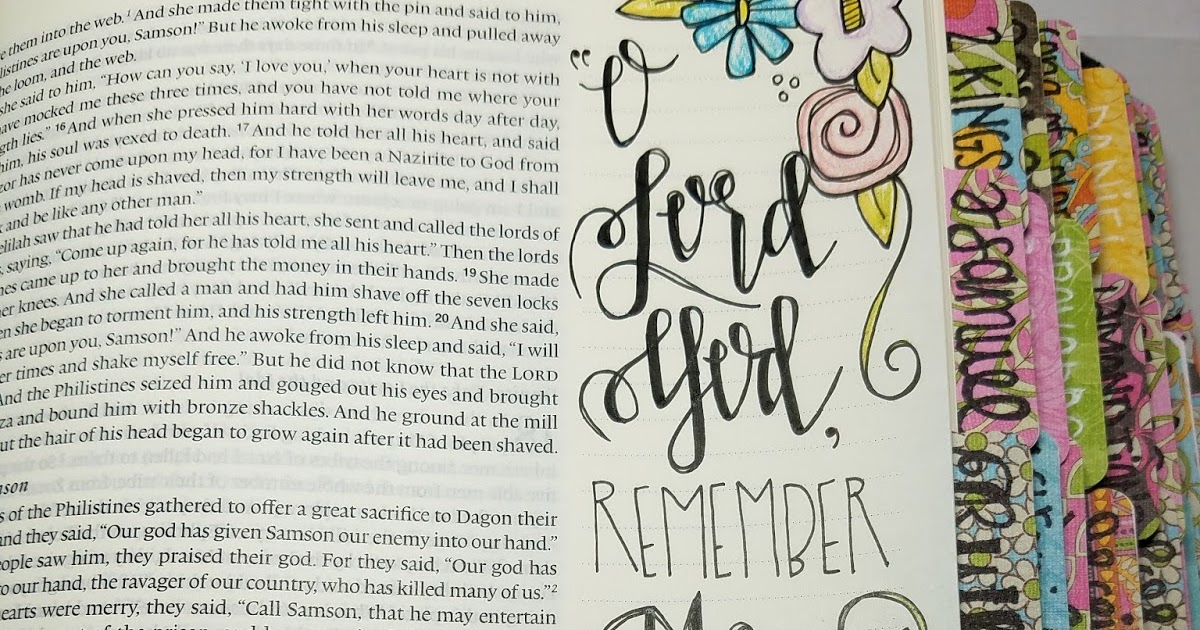 them into the web.¹ And she made them tight with the pin and said to him,
listines are upon you, Samson!” But he awoke from his sleep and pulled away
he loom, and the web.
she said to him, “How can you say, ‘I love you,’ when your heart is not with
ave mocked me these three times, and you have not told me where your
gth lies.” 16 And when she pressed him hard with her words day after day,
him, his soul was vexed to death. 17 And he told her all his heart, and said
zor has never come upon my head, for I have been a Nazirite to God from
womb. If my head is shaved, then my strength will leave me, and I shall
and be like any other man.”
elilah saw that he had told her all his heart, she sent and called the lords of
saying, “Come up again, for he has told me all his heart.” Then the lords
nes came up to her and brought the money in their hands. 19 She made
er knees. And she called a man and had him shave off the seven locks
en she began to torment him, and his strength left him. 20 And she said,
s are upon you, Samson!” And he awoke from his sleep and said, “I will
er times and shake myself free.” But he did not know that the LORD
And the Philistines seized him and gouged out his eyes and brought
za and bound him with bronze shackles. And he ground at the mill
ut the hair of his head began to grow again after it had been shaved.
nson
s of the Philistines gathered to offer a great sacrifice to Dagon their
and they said, “Our god has given Samson our enemy into our hand.”
eople saw him, they praised their god. For they said, “Our god has
o our hand, the ravager of our country, who has killed many of us.”²
earts were merry, they said, “Call Samson, that he may entertain
“O
Lord
God,
REMEMBER
2 KINGS
2 Samuel
DANIEL